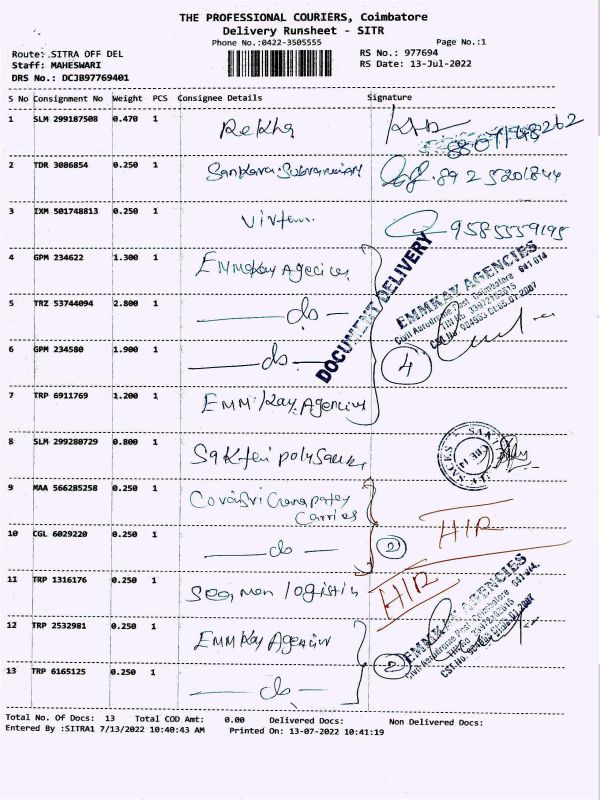 THE PROFESSIONAL COURIERS, Coimbatore
Delivery Runsheet - SITR
Phone No.:0422-3505555 Page No.:1
Route: SITRA OFF DEL RS No.: 977694
Staff: MAHESWARI RS Date: 13-Jul-2022
DRS No.: DCJB97769401
S No Consignment No Weight PCS Consignee Details Signature
1 SLM 299187508 0.470 1 Rekha
2 TDR 3086854 0.250 1
3 IXM 501748813 0.250 1 9585559195
4 GPM 234622 1.300 1 Emmkay
5 TRZ 53744094 2.800 1 do
6 GPM 234580 1.900 1 do
DOCUMENT DELIVERY
EMMKAY AGENCIES
Civil Aerodrome Post, Coimbatore 641 014
4
7 TRP 6911769 1.200 1
8 SLM 299280729 0.800 1
9 MAA 566285258 0.250 1
10 CGL 6029220 0.250 1 do 2 HIR
11 TRP 1316176 0.250 1 HIR
12 TRP 2532981 0.250 1 Emmkay
EMMKAY AGENCIES
Civil Aerodrome Post, Coimbatore 641 014
2
13 TRP 6165125 0.250 1 do
Total No. Of Docs: 13 Total COD Amt: 0.00 Delivered Docs: Non Delivered Docs:
Entered By :SITRA1 7/13/2022 10:40:43 AM Printed On: 13-07-2022 10:41:19